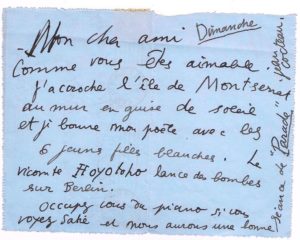 Dimanche
Mon cher ami
Comme vous êtes aimable.
J'accroche l'île de Montserrat
au mur en guise de soleil
et je bourre mon poêle avec les
6 jeunes filles blanches. Le
vicomte lance des bombes
sur Berlin.
Occupez vous du piano si vous
voyez Satie et nous aurons une bonne
séance de "Parade" Jean Cocteau